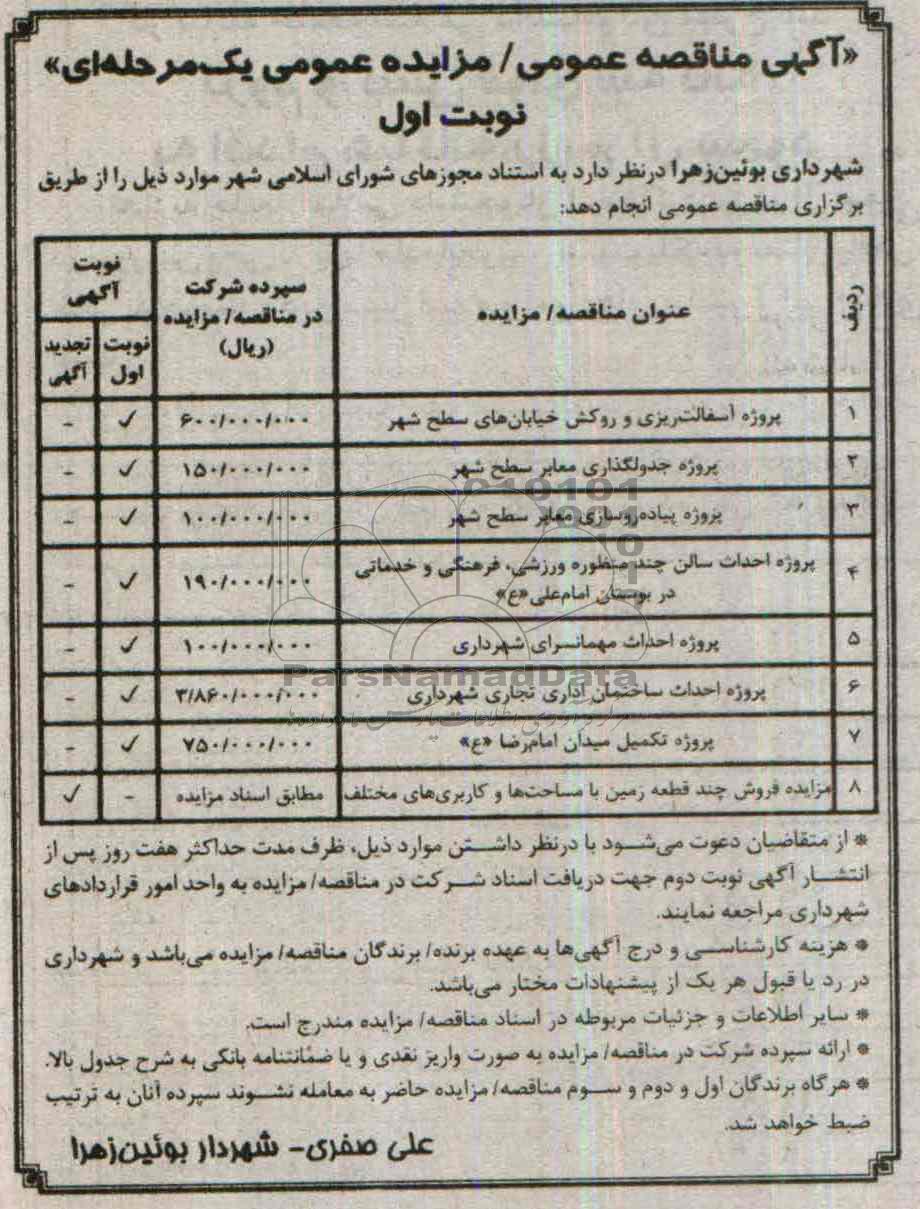 «آگهی مناقصه عمومی/ مزایده عمومی یک‌مرحله‌ای»
نوبت اول
شهرداری بوئین‌زهرا درنظر دارد به استناد مجوزهای شورای اسلامی شهر موارد ذیل را از طریق
برگزاری مناقصه عمومی انجام دهد:
ردیف | عنوان مناقصه/ مزایده | سپرده شرکت در مناقصه/ مزایده (ریال) | نوبت آگهی
نوبت اول | تجدید آگهی
۱ | پروژه آسفالت‌ریزی و روکش خیابان‌های سطح شهر | ۶۰۰/۰۰۰/۰۰۰ | ✓ | -
۲ | پروژه جدولگذاری معابر سطح شهر | ۱۵۰/۰۰۰/۰۰۰ | ✓ | -
۳ | پروژه پیاده‌روسازی معابر سطح شهر | ۱۰۰/۰۰۰/۰۰۰ | ✓ | -
۴ | پروژه احداث سالن چند منظوره ورزشی، فرهنگی و خدماتی در بوستان امام‌علی«ع» | ۱۹۰/۰۰۰/۰۰۰ | ✓ | -
۵ | پروژه احداث مهمانسرای شهرداری | ۱۰۰/۰۰۰/۰۰۰ | ✓ | -
۶ | پروژه احداث ساختمان اداری تجاری شهرداری | ۳/۸۶۰/۰۰۰/۰۰۰ | ✓ | -
۷ | پروژه تکمیل میدان امام‌رضا «ع» | ۷۵۰/۰۰۰/۰۰۰ | ✓ | -
۸ | مزایده فروش چند قطعه زمین با مساحت‌ها و کاربری‌های مختلف | مطابق اسناد مزایده | - | ✓
ParsNamadData
* از متقاضیان دعوت می‌شود با درنظر داشتن موارد ذیل، ظرف مدت حداکثر هفت روز پس از
انتشار آگهی نوبت دوم جهت دریافت اسناد شرکت در مناقصه/ مزایده به واحد امور قراردادهای
شهرداری مراجعه نمایند.
* هزینه کارشناسی و درج آگهی‌ها به عهده برنده/ برندگان مناقصه/ مزایده می‌باشد و شهرداری
در رد یا قبول هر یک از پیشنهادات مختار می‌باشد.
* سایر اطلاعات و جزئیات مربوطه در اسناد مناقصه/ مزایده مندرج است.
* ارائه سپرده شرکت در مناقصه/ مزایده به صورت واریز نقدی و یا ضمانتنامه بانکی به شرح جدول بالا.
* هرگاه برندگان اول و دوم و سوم مناقصه/ مزایده حاضر به معامله نشوند سپرده آنان به ترتیب
ضبط خواهد شد.
علی صفری- شهردار بوئین‌زهرا